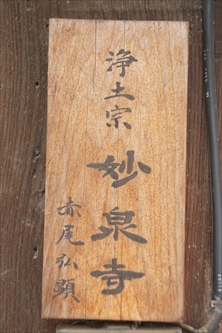 浄土宗
妙泉寺
赤尾弘顕